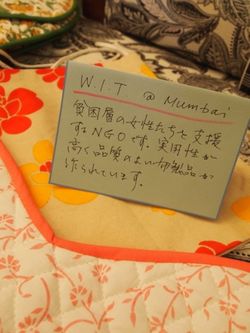 W.I.T @ Mumbai
貧困層の女性たちを支援
するNGOです。実用性が
高く品質のよい布製品が
作られています。